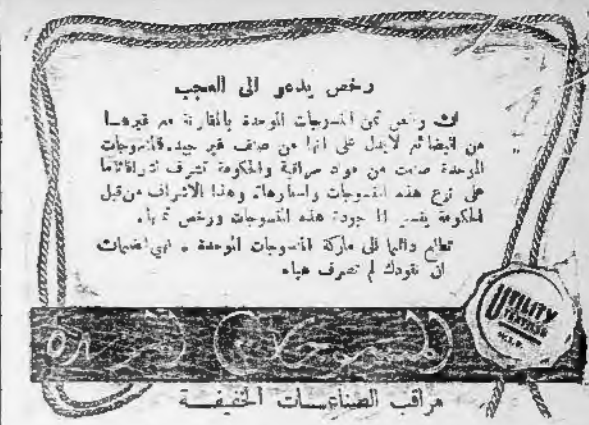 رخص يدعو الى العجب
ان رخص ثمن المنسوجات الموحدة بالمقارنة مع غيرها
من البضائع لايدل على انها من صنف غير جيد. فالمنسوجات
الموحدة صنعت من مواد مراقبة والحكومة تشرف
على نوع هذه المنسوجات واسعارها. وهذا الاشراف من قبل
الحكومة يفسر لنا جودة هذه المنسوجات ورخص ثمنها.
تطلع دائما الى ماركة المنسوجات الموحدة
ان نقودك لم تصرف هباء
UTILITY
المنسوجات
مراقب الصناعات الخفيفة